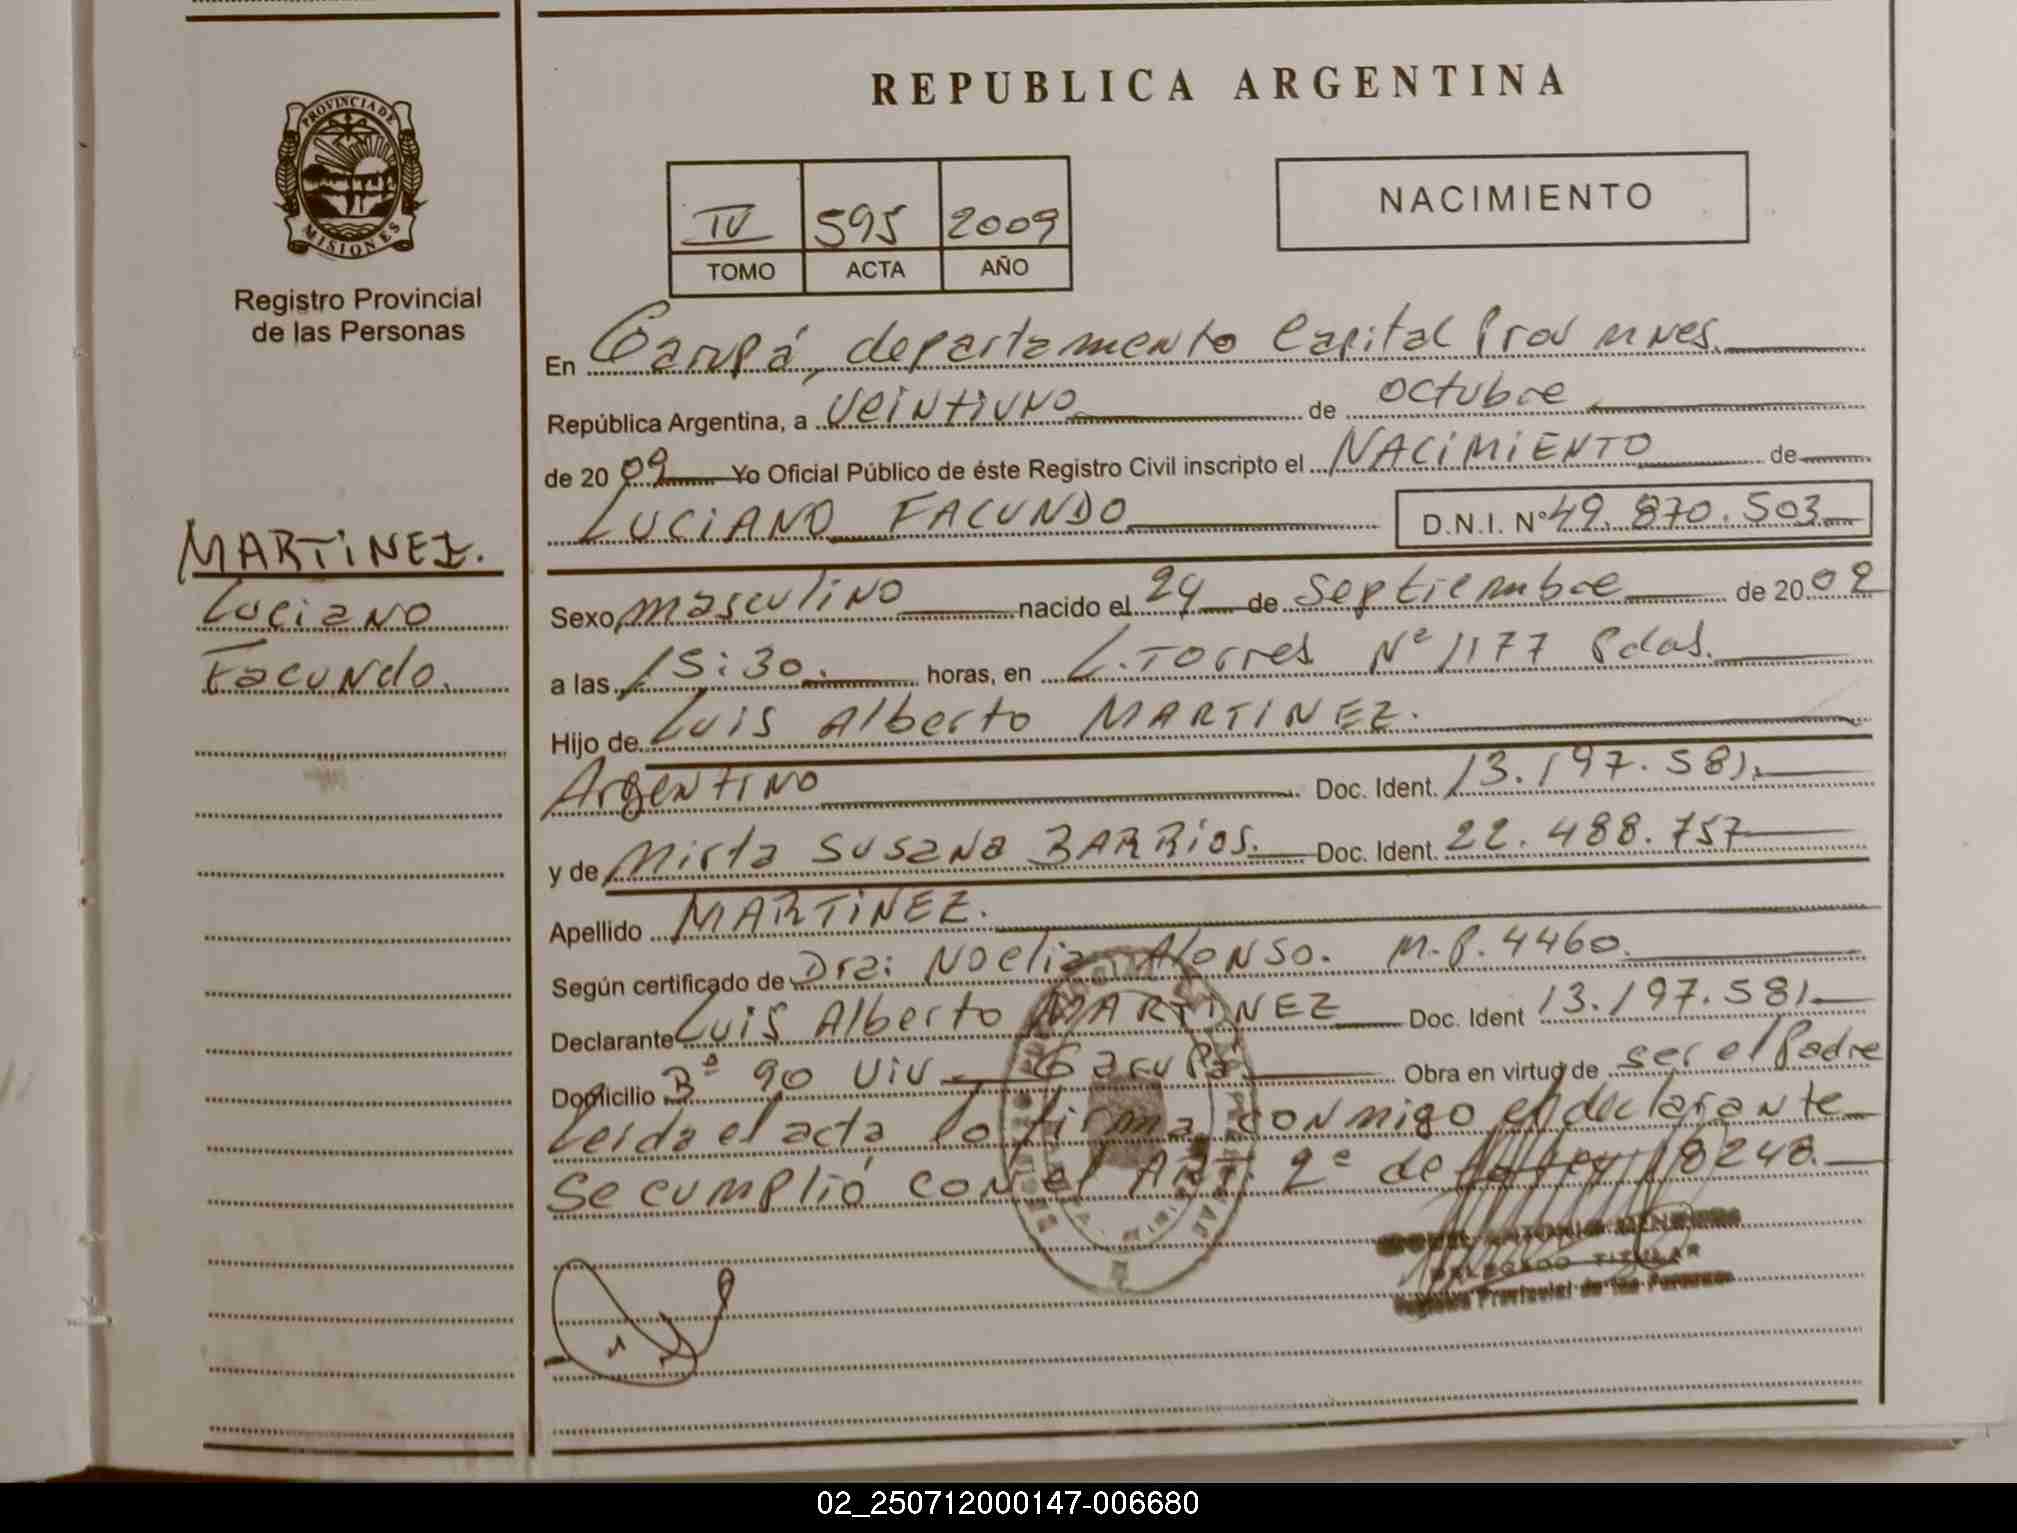 REPUBLICA ARGENTINA
PROVINCIA DE MISIONES
Registro Provincial
de las Personas
IV 595 2009
TOMO ACTA AÑO
NACIMIENTO
En Garupá, departamento Capital Prov Mnes.
República Argentina, a veintiuno de octubre
de 2009 Yo Oficial Público de éste Registro Civil inscripto el NACIMIENTO de
LUCIANO FACUNDO D.N.I. Nº 49.870.503
MARTINEZ.
Luciano
Facundo.
Sexo masculino nacido el 24 de septiembre de 2009
a las 15:30. horas, en L. Torres Nº 1177 Pdas.
Hijo de Luis Alberto MARTINEZ.
Argentino Doc. Ident. 13.197.581.
y de Mirta Susana BARRIOS. Doc. Ident. 22.488.757
Apellido MARTINEZ.
Según certificado de Dra: Noelia Alonso. M.P. 4460.
Declarante Luis Alberto MARTINEZ Doc. Ident 13.197.581
Domicilio Bº 90 Viv - Garupá Obra en virtud de ser el Padre
Leida el acta lo firma conmigo el declarante
Se cumplió con el ART. 2º de la Ley 18248.
DELEGADO TITULAR
Registro Provincial de las Personas
02_250712000147-006680